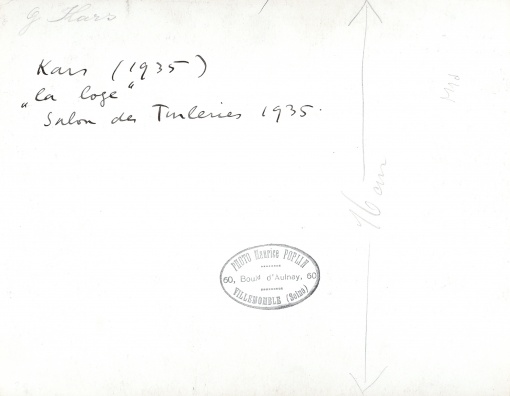 G. Kars
Kars (1935)
„la loge“
Salon des Tuileries 1935.
16 cm
PHOTO Maurice POPLIN
60, Boul.d d'Aulnay, 60
VILLEMOMBLE (Seine)